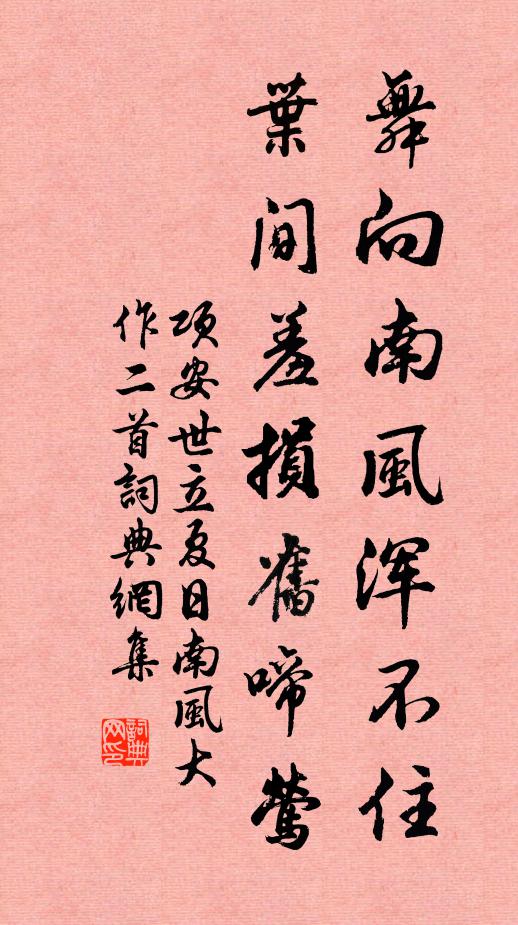 舞向南風渾不住
葉間羞損舊啼鶯
項安世立夏日南風大
作二首詞典網集
詞典網印